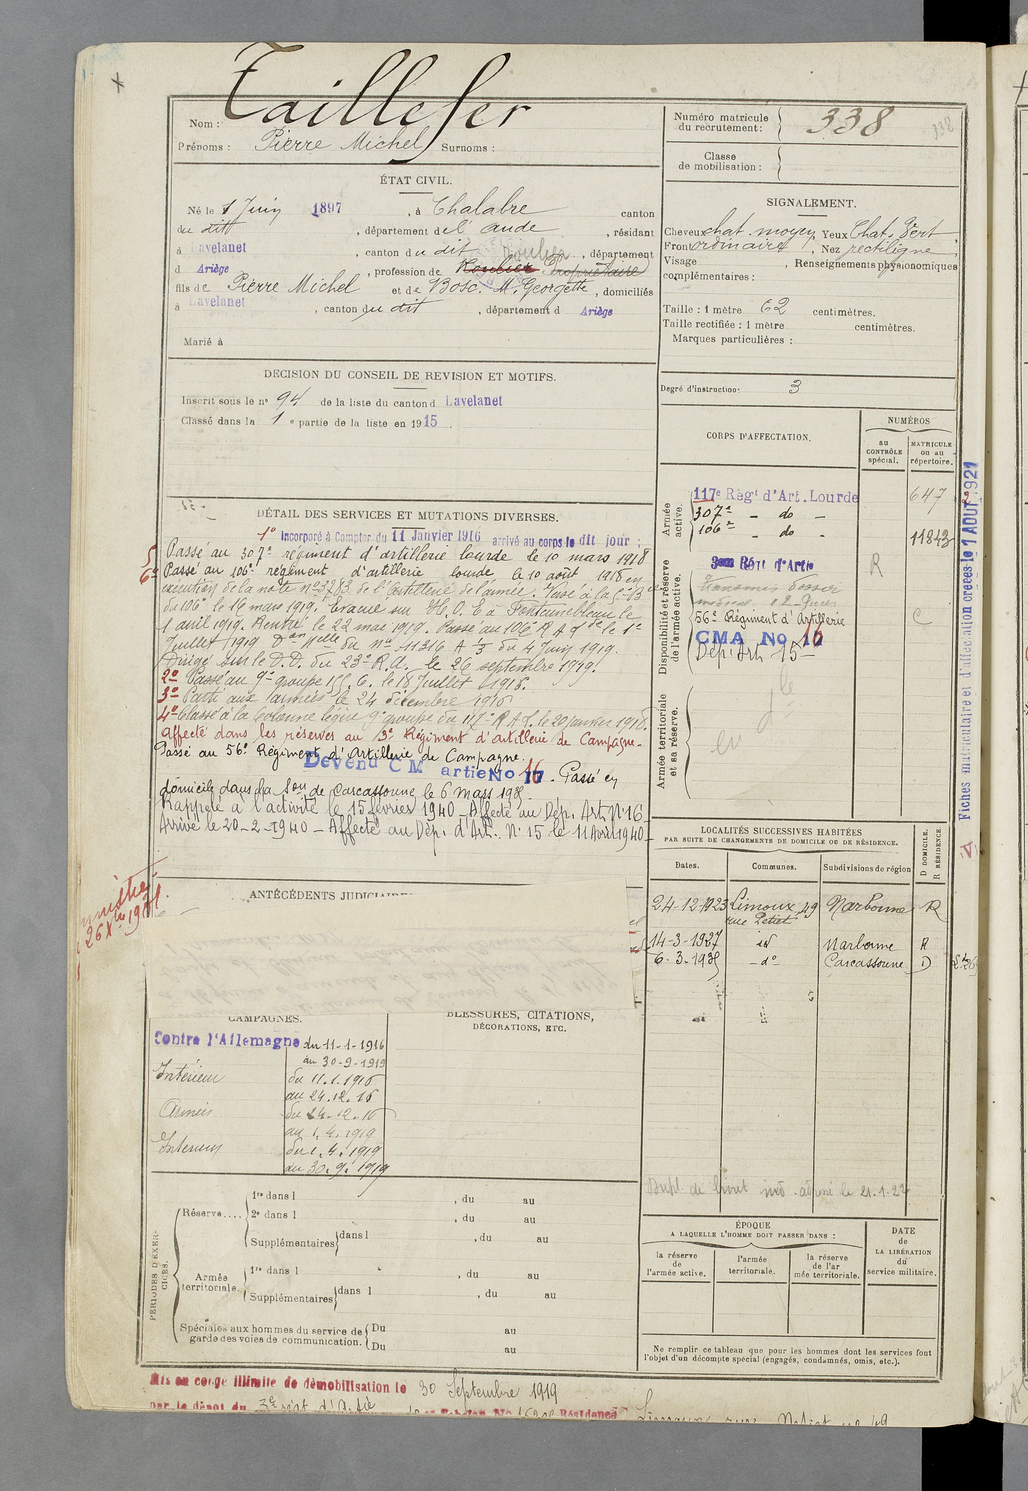 Taillefer
Nom :
Prénoms : Pierre Michel Surnoms :
Numéro matricule du recrutement : 338
338
Classe de mobilisation :
ÉTAT CIVIL.
Né le 1 Juin 1897, à Chalabre canton
du dit, département de l'Aude, résidant
à Lavelanet, canton du dit, département
d Ariège, profession de Roulier Propriétaire
fils de Pierre Michel et de Bosc. M. Georgette, domiciliés
à Lavelanet, canton du dit, département d Ariège
Marié à
SIGNALEMENT.
Cheveux chat. moyen, Yeux Chat. Vert
Front ordinaire, Nez rectiligne
Visage, Renseignements physionomiques
complémentaires :
Taille : 1 mètre 62 centimètres.
Taille rectifiée : 1 mètre centimètres.
Marques particulières :
Degré d'instruction: 3
DECISION DU CONSEIL DE REVISION ET MOTIFS.
Inscrit sous le n° 94 de la liste du canton d Lavelanet
Classé dans la 1e partie de la liste en 1915.
CORPS D'AFFECTATION.
NUMÉROS
au CONTRÔLE spécial.
MATRICULE ou au répertoire.
Armée active.
117e Régt d'Art. Lourde 647
307e - do -
106e - do - 11843
Disponibilité et réserve de l'armée active.
3em Régt d'Artie R
56e Régiment d'Artillerie C
CMA No 16
Dép. Art. 15
Armée territoriale et sa réserve.
Fiches matriculaire et d'affectation créées le 1 AOUT 1921
DÉTAIL DES SERVICES ET MUTATIONS DIVERSES.
1° Incorporé à Compter du 11 Janvier 1916 arrivé au corps le dit jour ;
Passé au 307e régiment d'artillerie lourde le 10 mars 1918
Passé au 106e régiment d'artillerie lourde le 10 août 1918 en
exécution de la note n° 3783 de l'artillerie de l'armée. Passé à la
du 106e le 16 mars 1919. Évacué sur H.O.E à Fontainebleau le
1 avril 1919. Rentré le 22 mai 1919. Passé au 106e R A le 1er
Juillet 1919 Don de du n° 11316 A du 4 Juin 1919.
Dirigé sur le D.D. du 23e R.A. le 26 septembre 1919.
2° Passé au 9e groupe 155 C. le 18 Juillet 1916.
3° Parti aux armées le 24 décembre 1916
4° Classé à la Colonne légère 9e groupe du 117e R A L le 20 janvier 1918.
Affecté dans les réserves au 3e Régiment d'artillerie de Campagne
Passé au 56e Régiment d'Artillerie de Campagne.
Devenu C M artie No 16. Passé en
domicile dans la Son de Carcassonne le 6 mars 1935
Rappelé à l'activité le 15 février 1940 - Affecté au Dép. Art. N° 16
Arrivé le 20-2-1940 - Affecté au Dép. d'Art. N° 15 le 11 Avril 1940
LOCALITÉS SUCCESSIVES HABITÉES
PAR SUITE DE CHANGEMENTS DE DOMICILE OU DE RÉSIDENCE.
Dates. Communes. Subdivisions de région D DOMICILE. R RÉSIDENCE.
24-12-1923 Limoux, 49 Narbonne R
rue Petiet
14-3-1927 id Narbonne R
6-3-1935 do Carcassonne D
Dupl. de livret
ANTÉCÉDENTS JUDICIAIRE
CAMPAGNES.
Contre l'Allemagne du 11-1-1916
au 30-9-1919
Intérieur du 11.1.1916
au 24.12.16
Armées du 24-12-16
au 1.4.1919
Intérieur du 1.4.1919
au 30.9.1919
BLESSURES, CITATIONS,
DÉCORATIONS, ETC.
PÉRIODES D'EXERCICES.
Réserve....
1re dans l , du au
2e dans l , du au
Supplémentaires dans l , du au
Armée territoriale.
1re dans l , du au
Supplémentaires dans l , du au
Spéciales aux hommes du service de garde des voies de communication.
Du au
Du au
ÉPOQUE
A LAQUELLE L'HOMME DOIT PASSER DANS :
la réserve de l'armée active.
l'armée territoriale.
la réserve de l'armée territoriale.
DATE de LA LIBÉRATION du service militaire.
Ne remplir ce tableau que pour les hommes dont les services font
l'objet d'un décompte spécial (engagés, condamnés, omis, etc.).
Mis en congé illimité de démobilisation le 30 Septembre 1919
par le dépôt du